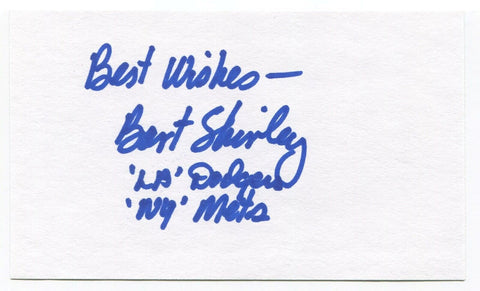 Best Wishes —
Bart Shirley
'LA' Dodgers
'NY' Mets